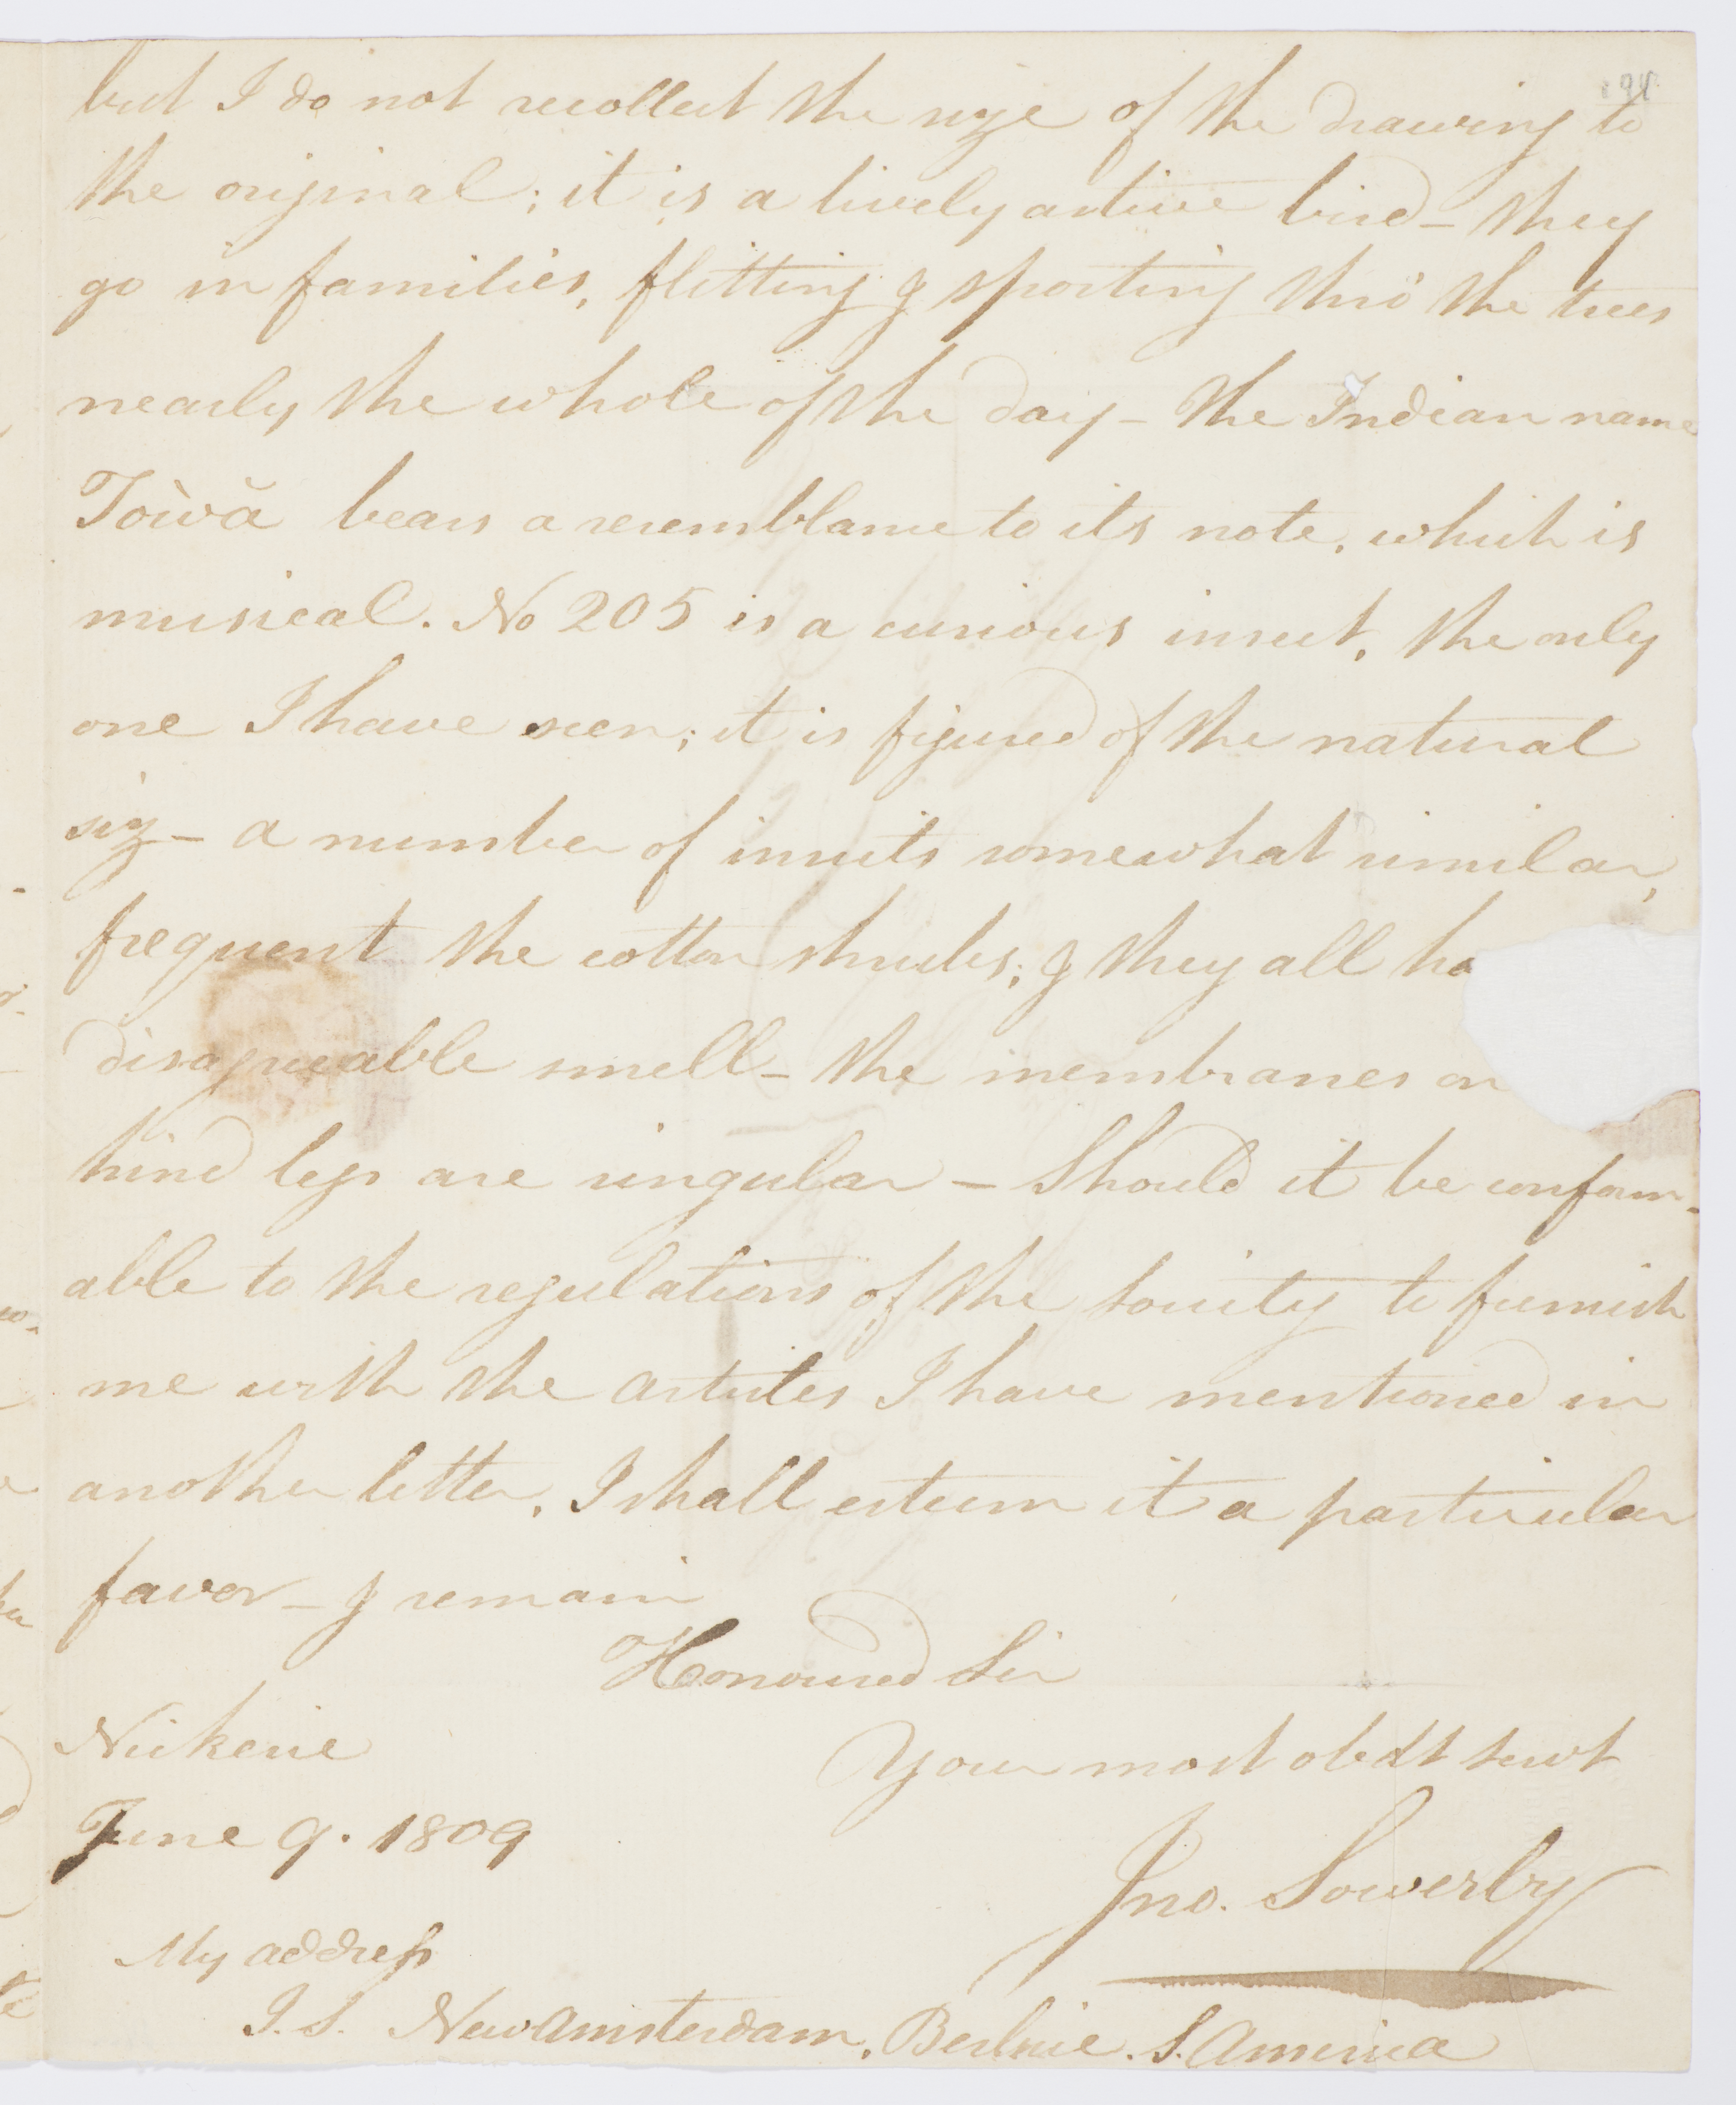 but I do not recollect the size of the drawing to
the original; it is a lively active bird – they
go in families, flitting & sporting thro' the trees
nearly the whole of the day – the Indian name
Tòwă bears a resemblance to its note, which is
musical. No 205 is a curious insect, the only
one I have seen; it is figured of the natural
siz – a number of insects somewhat similar,
frequent the cotton shrubs; & they all ha
disagreeable smell – the membranes on
hind legs are singular – Should it be conform-
able to the regulations of the Society to furnish
me with the articles I have mentioned in
another letter, I shall esteem it a particular
favor – & remain
Honoured Sir
Nickerie
Your most obdt servt
June 9. 1809
Jno. Sowerby
My address
J. S. New Amsterdam, Berbice. S. America